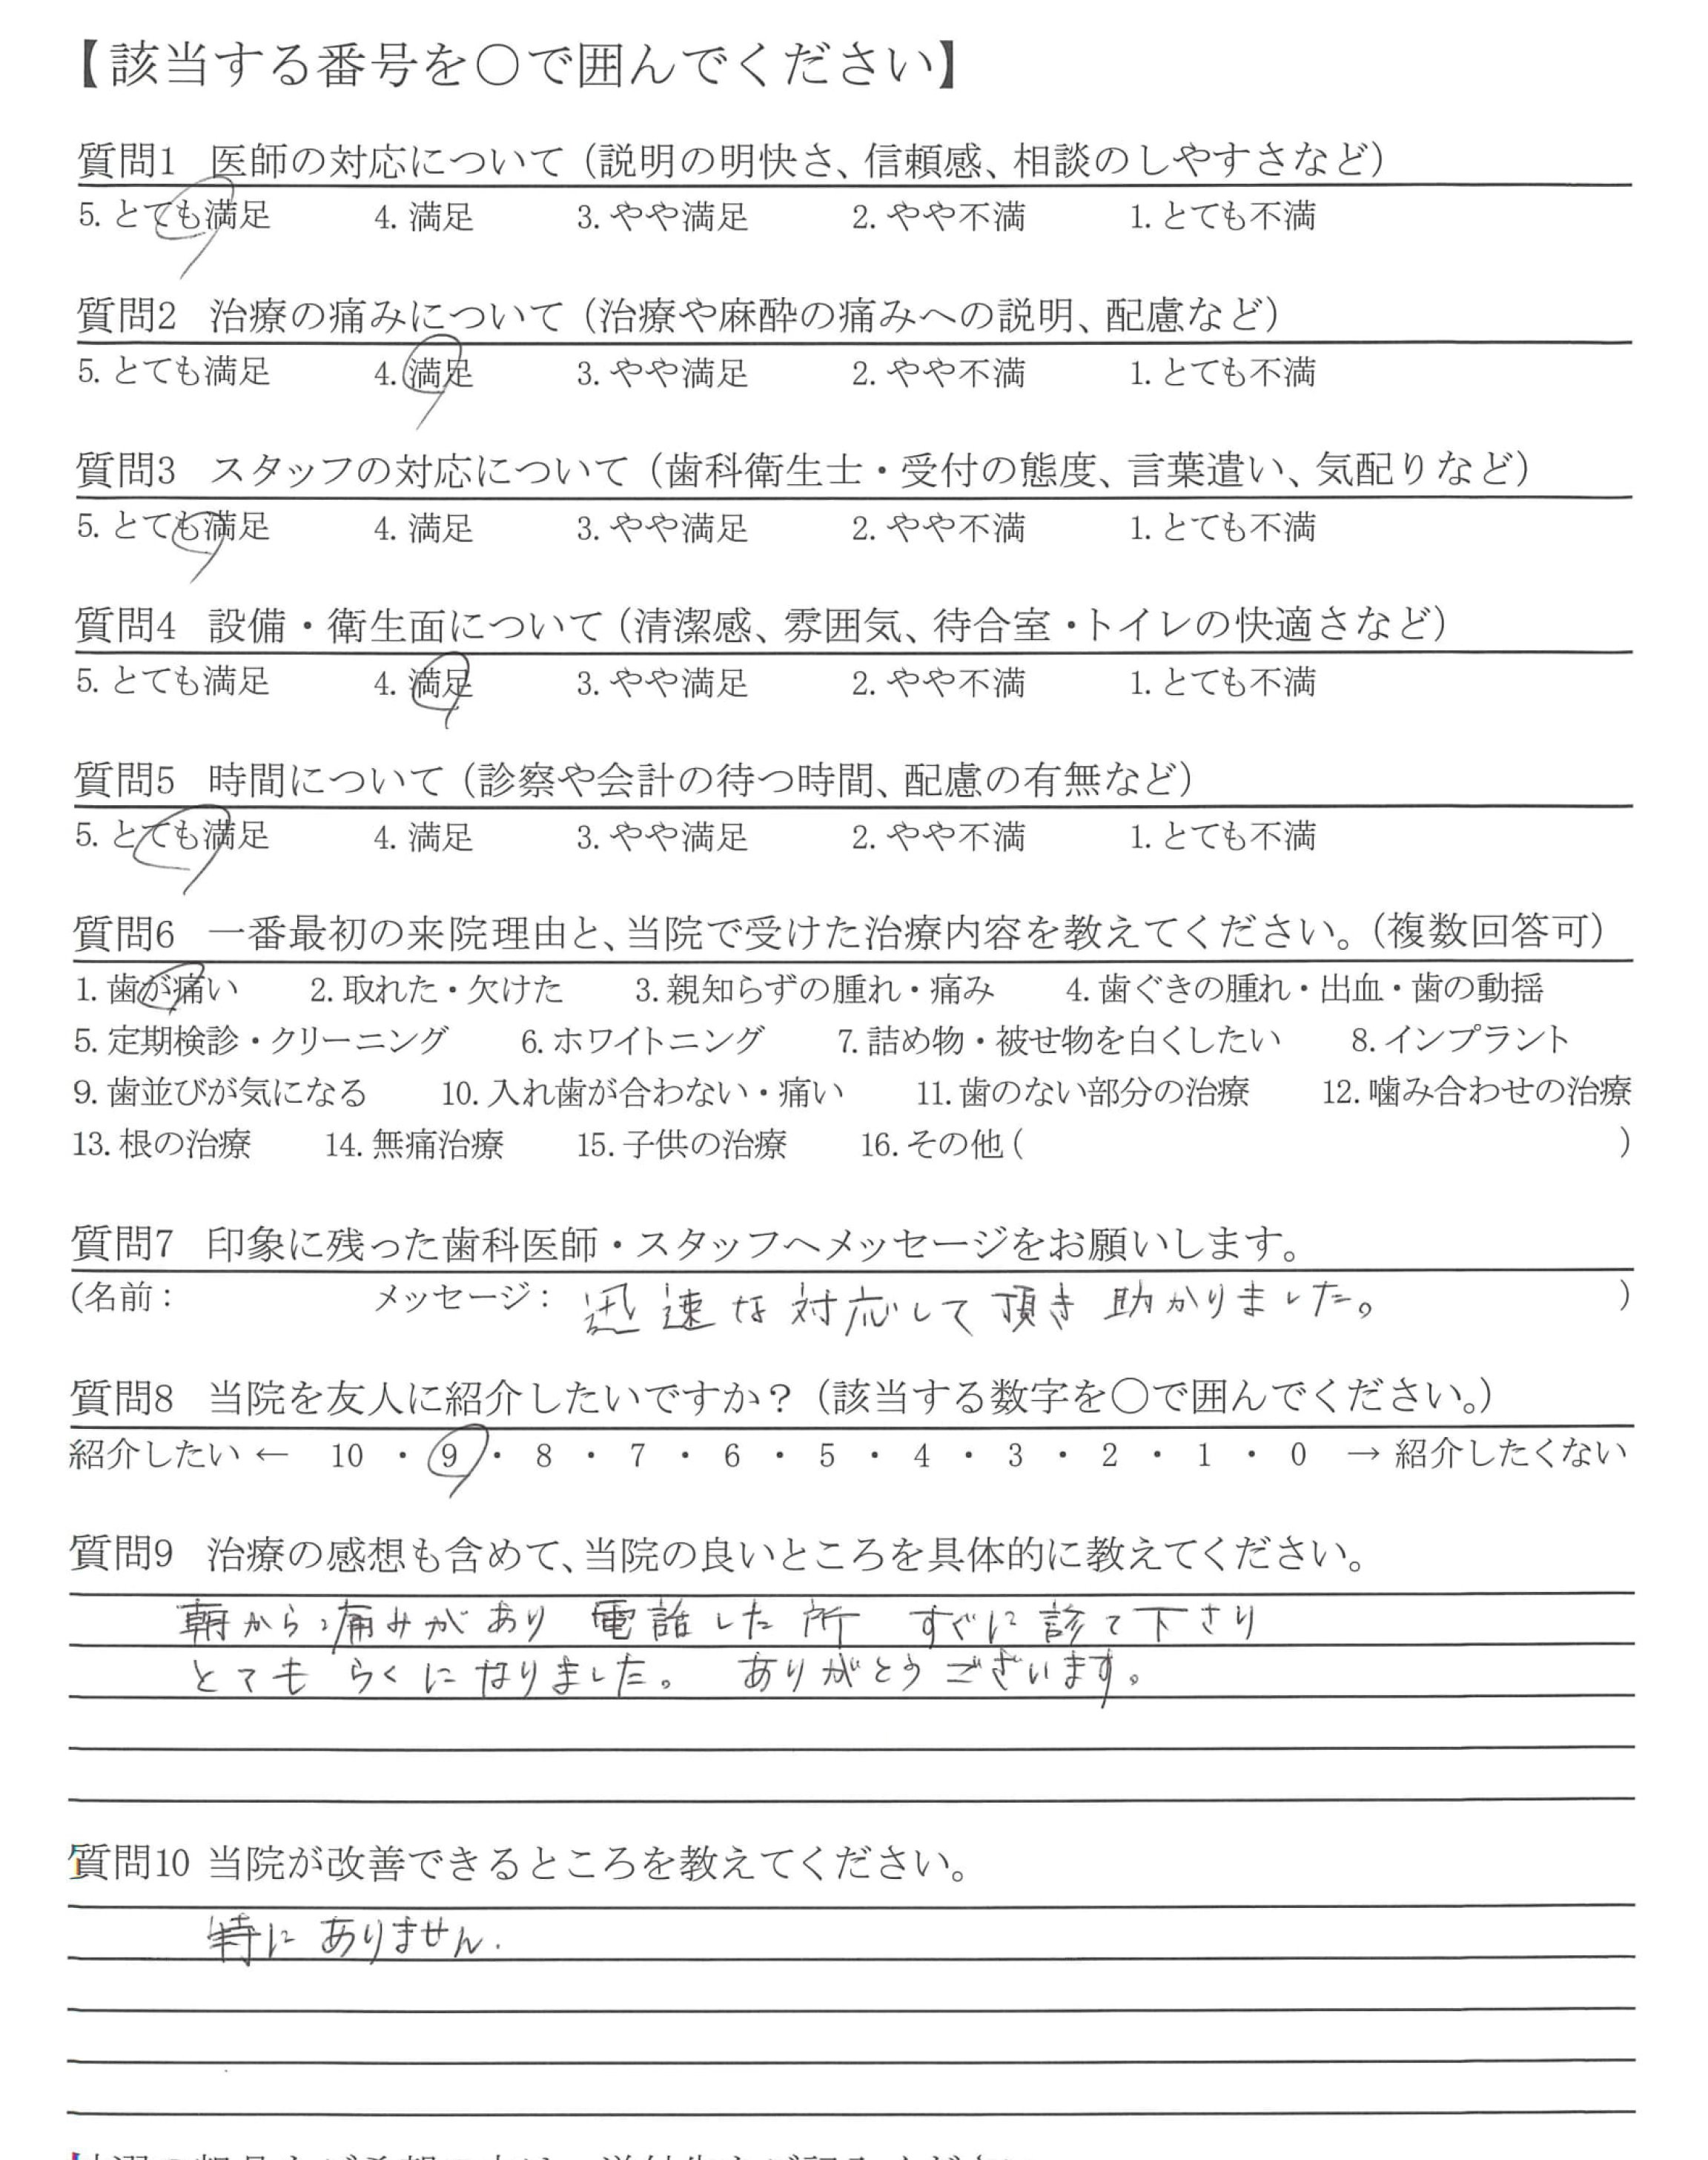 【該当する番号を○で囲んでください】
質問1 医師の対応について（説明の明快さ、信頼感、相談のしやすさなど）
5. とても満足 4. 満足 3. やや満足 2. やや不満 1. とても不満
質問2 治療の痛みについて（治療や麻酔の痛みへの説明、配慮など）
5. とても満足 4. 満足 3. やや満足 2. やや不満 1. とても不満
質問3 スタッフの対応について（歯科衛生士・受付の態度、言葉遣い、気配りなど）
5. とても満足 4. 満足 3. やや満足 2. やや不満 1. とても不満
質問4 設備・衛生面について（清潔感、雰囲気、待合室・トイレの快適さなど）
5. とても満足 4. 満足 3. やや満足 2. やや不満 1. とても不満
質問5 時間について（診察や会計の待つ時間、配慮の有無など）
5. とても満足 4. 満足 3. やや満足 2. やや不満 1. とても不満
質問6 一番最初の来院理由と、当院で受けた治療内容を教えてください。（複数回答可）
1. 歯が痛い 2. 取れた・欠けた 3. 親知らずの腫れ・痛み 4. 歯ぐきの腫れ・出血・歯の動揺
5. 定期検診・クリーニング 6. ホワイトニング 7. 詰め物・被せ物を白くしたい 8. インプラント
9. 歯並びが気になる 10. 入れ歯が合わない・痛い 11. 歯のない部分の治療 12. 噛み合わせの治療
13. 根の治療 14. 無痛治療 15. 子供の治療 16. その他（ ）
質問7 印象に残った歯科医師・スタッフへメッセージをお願いします。
（名前： メッセージ： 迅速な対応して頂き助かりました。 ）
質問8 当院を友人に紹介したいですか？（該当する数字を○で囲んでください。）
紹介したい ← 10 ・ 9 ・ 8 ・ 7 ・ 6 ・ 5 ・ 4 ・ 3 ・ 2 ・ 1 ・ 0 → 紹介したくない
質問9 治療の感想も含めて、当院の良いところを具体的に教えてください。
朝から痛みがあり 電話した所 すぐに診て下さり
とても らくになりました。 ありがとうございます。
質問10 当院が改善できるところを教えてください。
特に ありません.